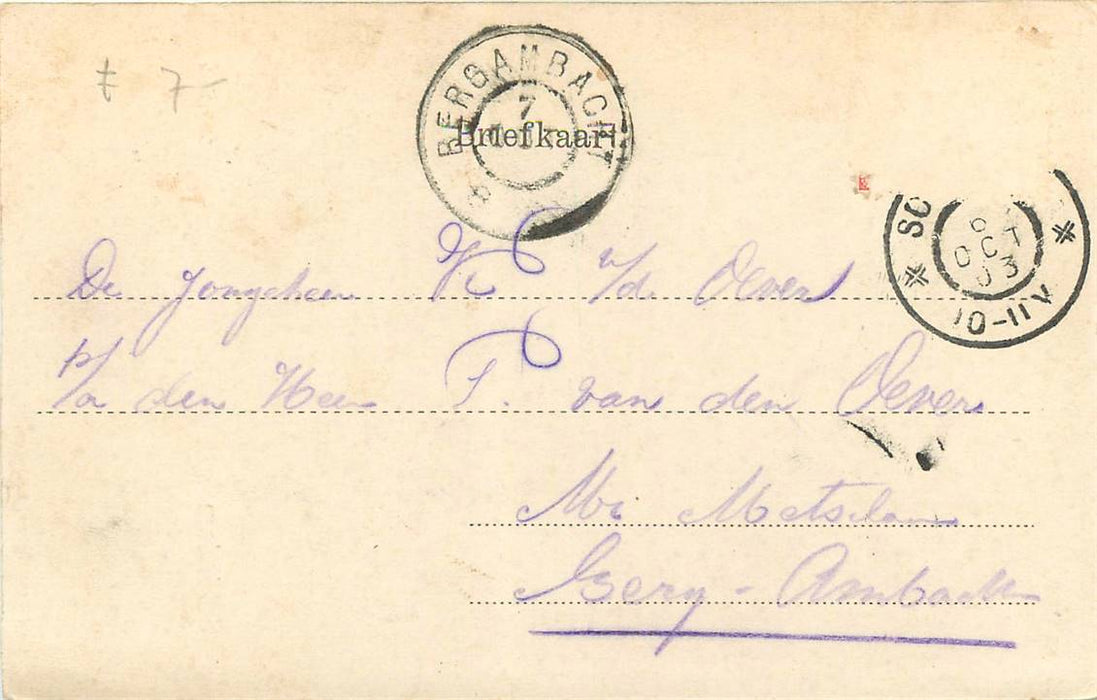 7-
BERGAMBACHT
7
Briefkaart
SC
6
OCT
03
10-11V
De Jongeheer K v/d Oever
p/a den Heer T. van den Oever
Mr Metselaar
Berg-Ambacht